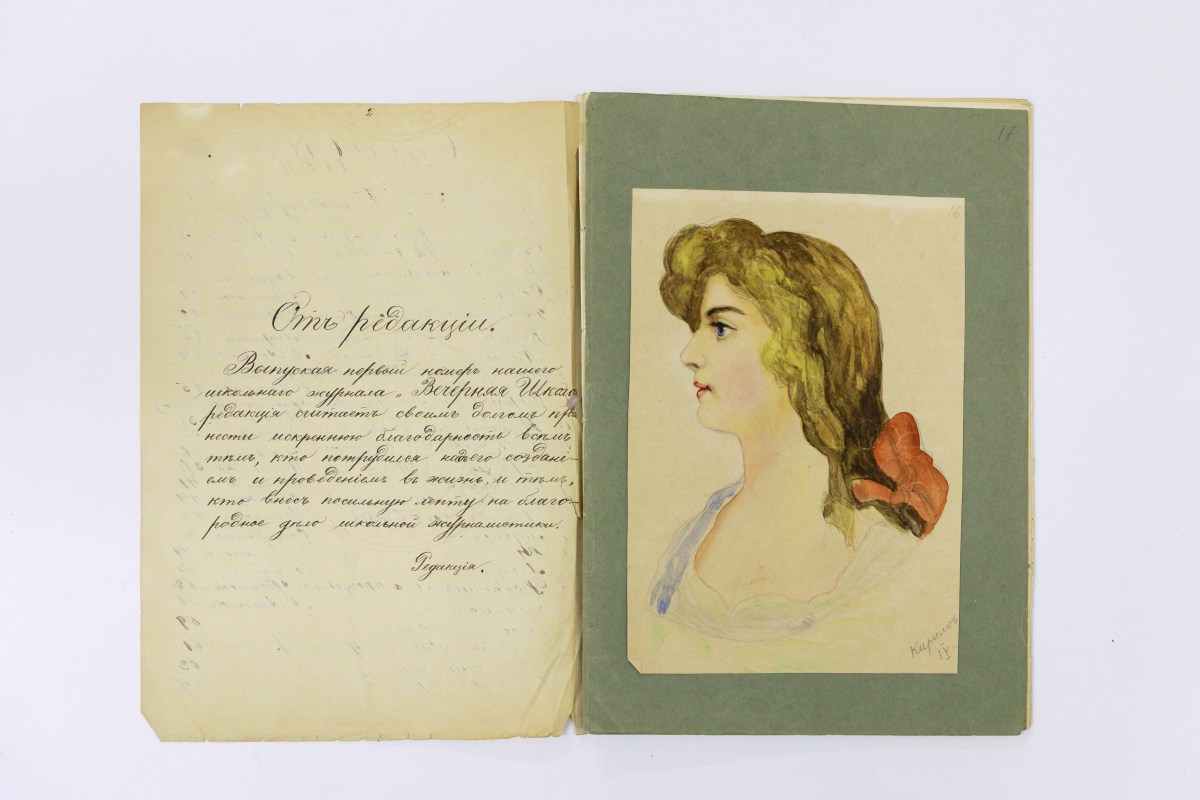 2
Отъ редакціи.
Выпуская первый номеръ нашего
школьнаго журнала „Вечерняя Школа
редакція считаетъ своимъ долгомъ при-
нести искреннюю благодарность всѣмъ
тѣмъ, кто потрудился надъ его создані-
емъ и проведеніемъ въ жизнь, и тѣмъ,
кто внесъ посильную лепту на благо-
родное дѣло школьной журналистики.
Редакція.
17
16
Кирилов
IV